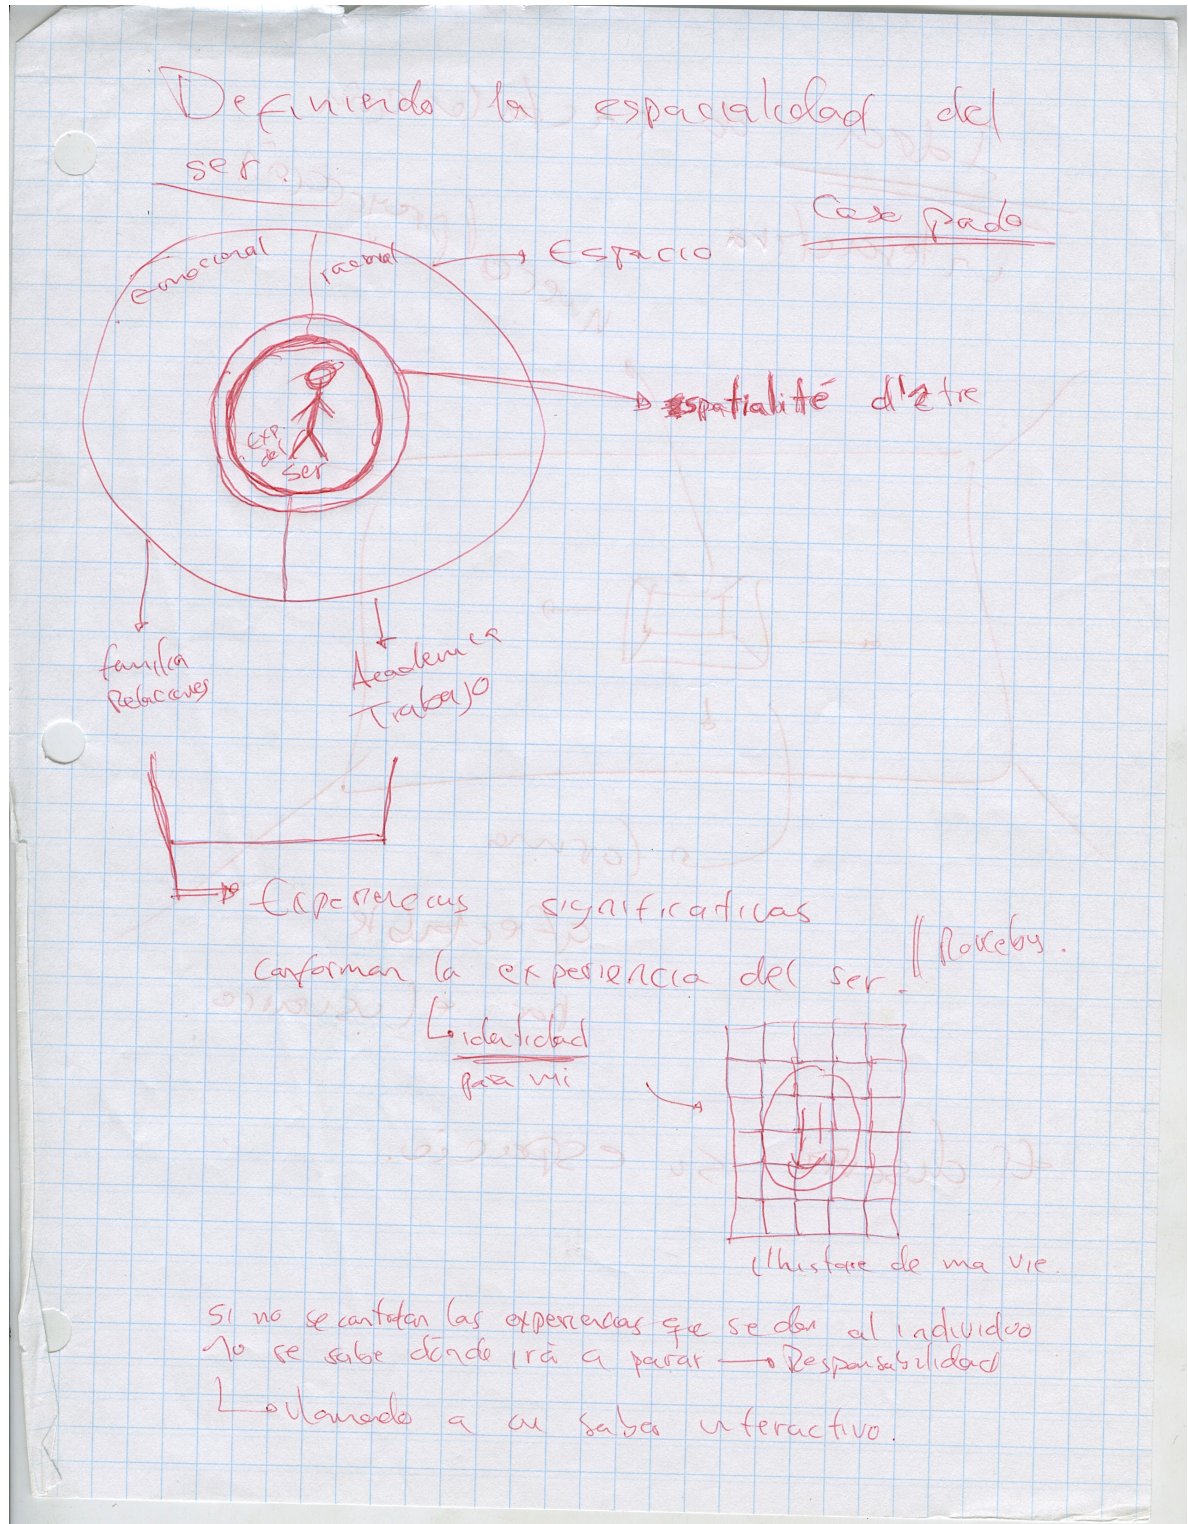 Definiendo la espacialidad del
ser.
Case pado
emocional
racional
Espacio
espatialité d'etre
exp.
del
ser
familia
Relaciones
Academica
Trabajo
Experiencias significativas
conforman la experiencia del ser.
identidad
para mi
l'histoire de ma vie.
Si no se controlan las experiencias que se dan al individuo
no se sabe dónde irá a parar → Responsabilidad
llamado a un saber interactivo.